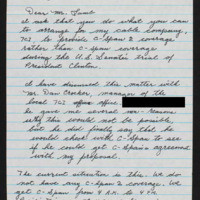 Dear Mr. 
I ask that you do what you can
to arrange for my cable company,
TCI to provide C-Span 2 coverage
rather than C-Span coverage
during the U.S. Senate trial of
President Clinton.
I have discussed this matter with
Mr. Dan Crocker, manager of the
local TCI office
he gave me several reasons
why this would not be possible,
but he did finally say that he
would check with C-Span to see
if he could get C-Span's agreement
with my proposal.
The current situation is this. We do
not have any C-Span 2 coverage. We
get C-Span from 9 A.M.